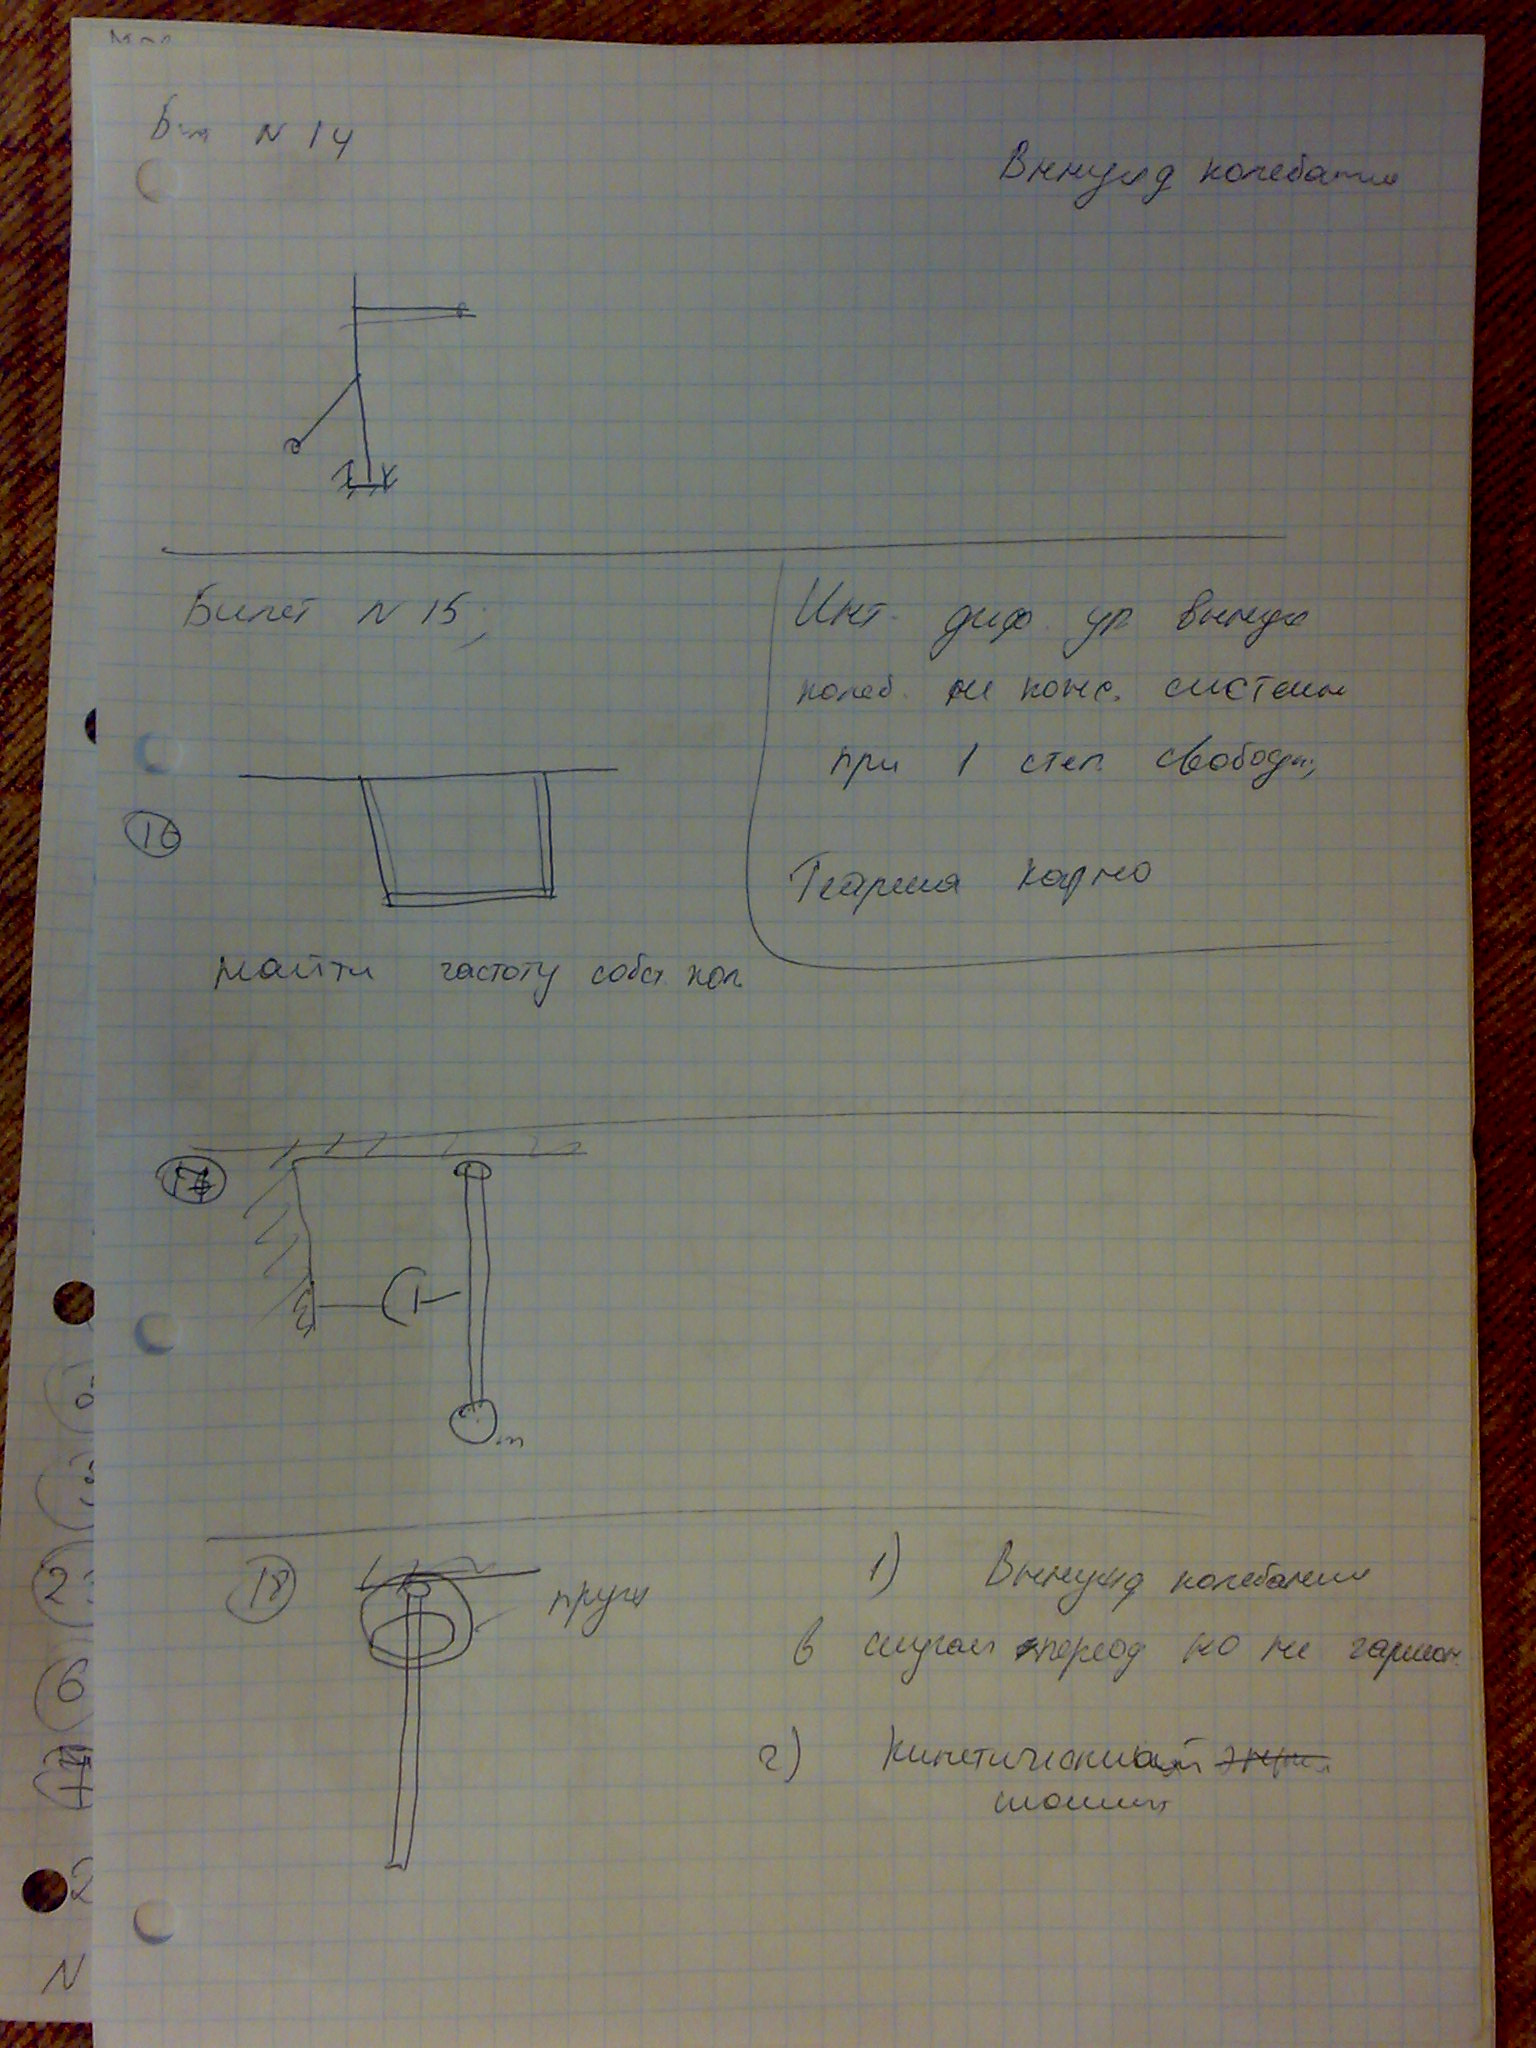 Бил N 14
Вынужд колебания
Билет N 15;
Инт. диф. ур вынужд
колеб. не конс. системы
при 1 степ. свободы;
16
Теорема Карно
найти частоту собст. кол.
17
m
18
пруж
1) Вынужд колебания
в случае период но не гармон.
2) Кинетический
момент
2
6
2
N